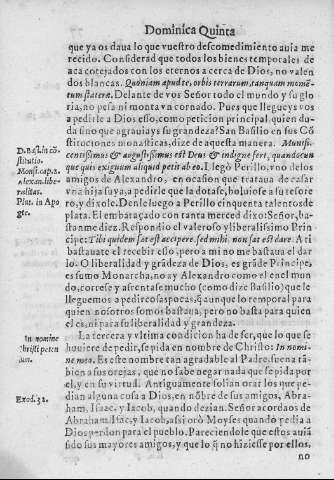 Dominica Quinta
que ya os daua lo que vuestro descomedimiento auia me
recido. Considerad que todos los bienes temporales de
aca cotejados con los eternos a cerca de Dios, no valen
dos blancas. Quoniam apud te, orbis terrarum, tanquam momē
tum staterae. Delante de vos Señor todo el mundo y su glo
ria, no pesa ni monta vn cornado. Pues que llegueys vos
a pedirle a Dios esso, como peticion principal, quien du-
da sino que agrauiays su grandeza? San Basilio en sus Cō
stituciones monasticas, dize de aquesta manera. Munifi-
centissimus & augustissimus est Deus & indigne fert, quandocun
que quis exiguum aliquid petit ab eo. Llegò Perillo, vno de los
amigos de Alexandro, en ocasion que trataua de casar
vna hija suya, a pedirle que la dotasse, boluiose a su tesore
ro, y dixole. Denle luego a Perillo cinquenta talentos de
plata. El embaraçado con tanta merced dixo: Señor, ba-
stanme diez. Respondio el valeroso y liberalissimo Prin-
cipe: Tibi quidem sat est accipere, sed mihi non sat est dare. A ti
bastauate el recebir esso, pero a mi no me bastaua el dar
lo. O liberalidad y grādeza de Dios, es grāde Principe,
es sumo Monarcha, no ay Alexandro como el en el mun
do, cortese y afrentase mucho (como dize Basilio) que le
lleguemos a pedir cosas pocas, q̄ aunque lo temporal para
quien nosotros somos bastaua, pero no basta para quien
el es, ni para su liberalidad y grandeza.
La tercera y vltima condicion ha de ser, que lo que se
houiere de pedir, se pida en nombre de Christo: In nomi-
ne meo. Es este nombre tan agradable al Padre, suena tā-
bien a sus orejas, que no sabe negar nada que se pida por
el, y en su virtud. Antiguamente solian orar los que pe-
dian alguna cosa a Dios, en nōbre de sus amigos, Abra-
ham, Isaac, y Iacob, quando dezian. Señor acordaos de
Abraham, Isac, y Iacob, assi orò Moyses quando pedia a
Dios perdon para el pueblo. Pareciendole que estos auiā
sido sus mayores amigos, y que lo q̄ no hiziesse por ellos,
no
D. Bas. in cō
stitutio.
Monast. cap. 2.
Alexan. libe-
ralitas.
Plut. in Apo
ge.
In nomine
Christi peten
dum.
Exod. 32.